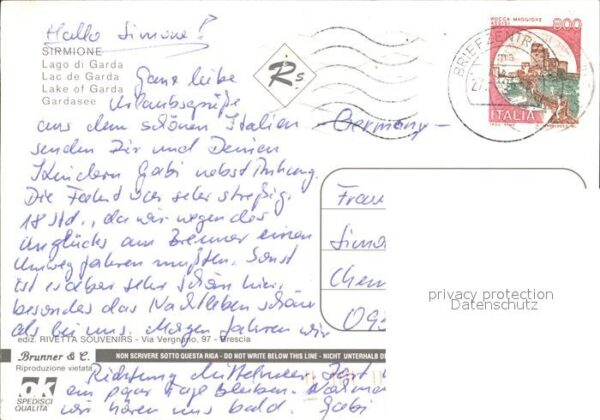 Hallo Simone!
SIRMIONE
Lago di Garda
Lac de Garda
Lake of Garda
Gardasee
Ganz liebe
Urlaubsgrüße
aus dem schönen Italien
senden Dir und Deinen
Kindern Gabi nebst Anhang.
Die Fahrt war sehr streßig,
18 Std., da wir wegen des
Unglücks am Brenner einen
Umweg fahren mußten. Sonst
ist es aber sehr schön hier,
besonders das Nachtleben schöner
als bei uns. Morgen fahren wir
Richtung Mittelmeer. Dort
ein paar Tage bleiben.
wir hören uns bald. Gabi
Rs
- Germany -
ROCCA MAGGIORE
ASSISI
800
ITALIA
BRIEFZENTR
Frau
Simo
Chem
09
privacy protection
Datenschutz
ediz. RIVETTA SOUVENIRS - Via Vergnano, 97 - Brescia
Brunner & C.
Riproduzione vietata
NON SCRIVERE SOTTO QUESTA RIGA - DO NOT WRITE BELOW THIS LINE - NICHT UNTERHALB DI
ok
SPEDISCI
QUALITÀ